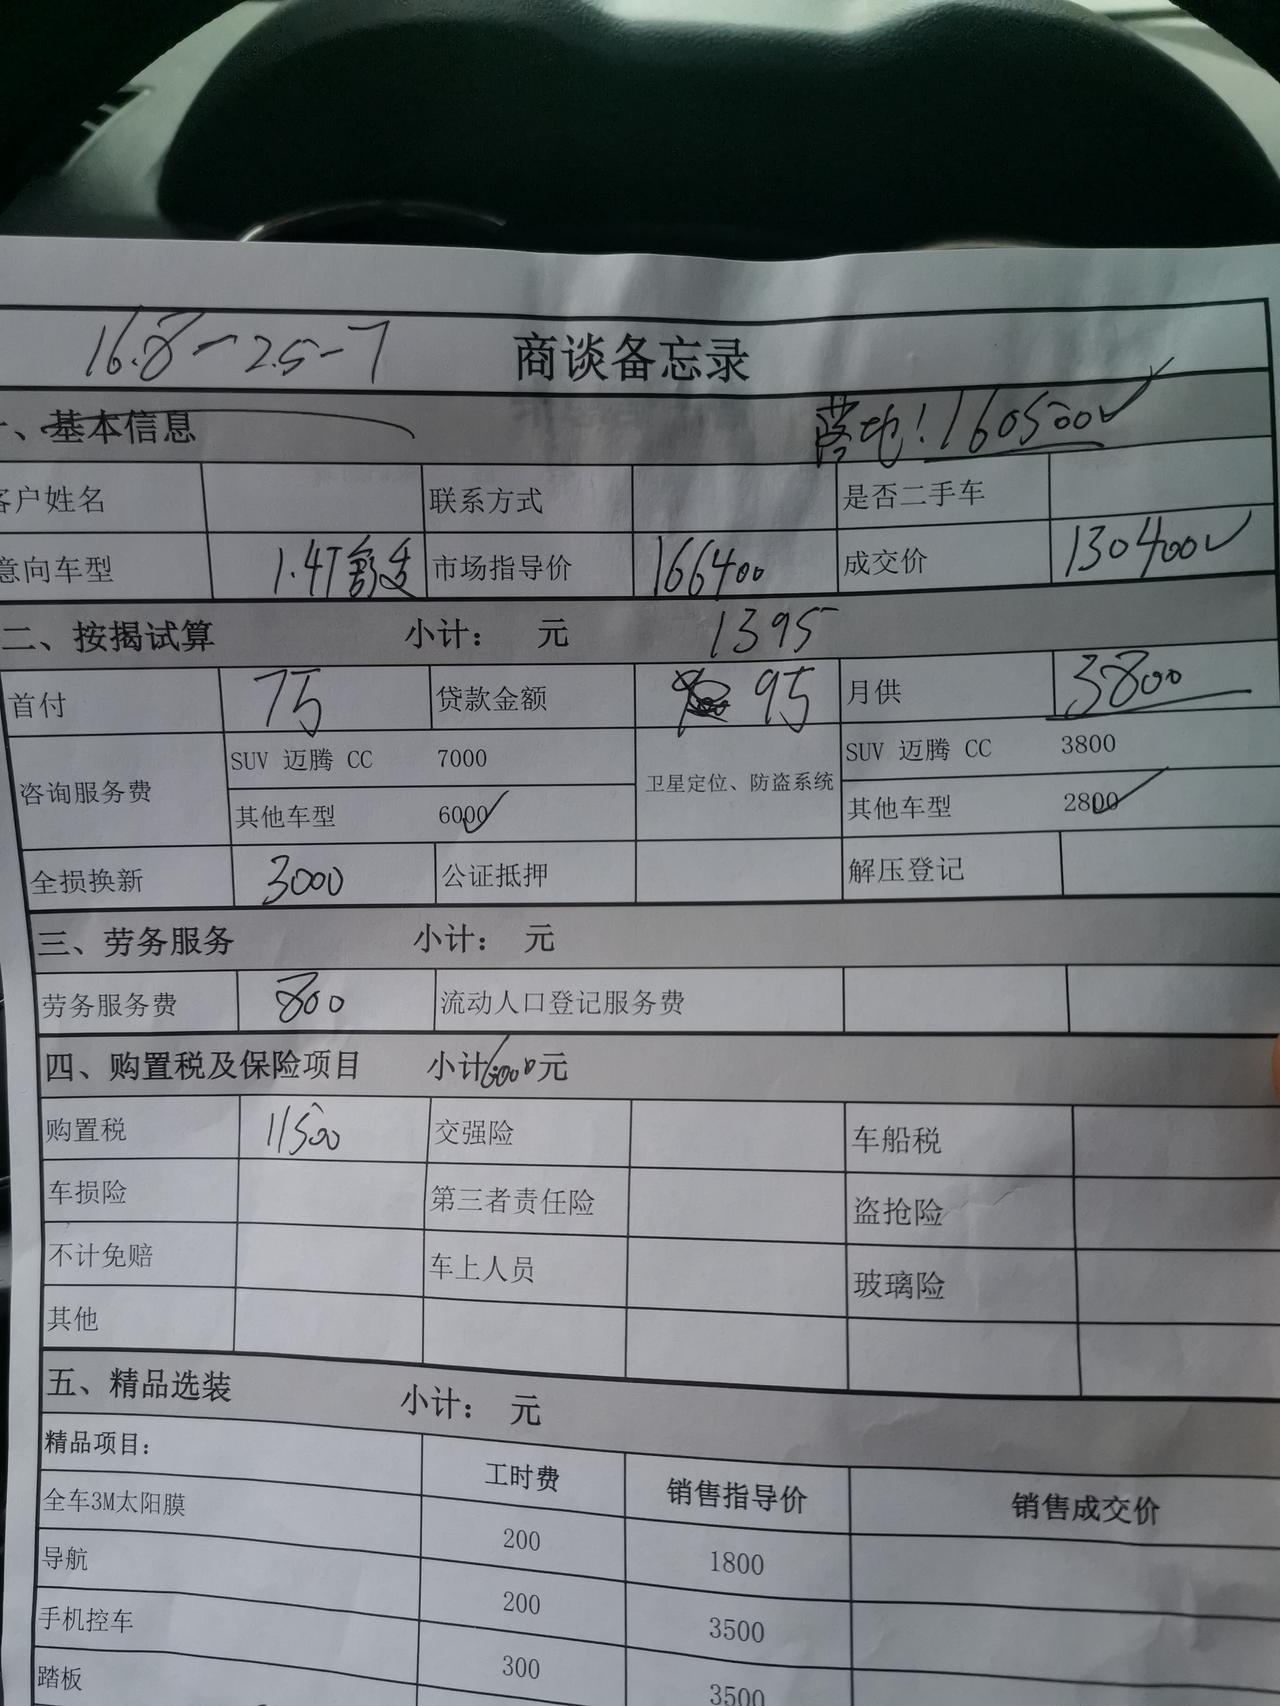 16.8-2.5-7
商谈备忘录
一、基本信息
落地!160500
客户姓名 联系方式 是否二手车
意向车型 1.4T舒适 市场指导价 166400 成交价 130400
二、按揭试算 小计： 元 1395
首付 7万 贷款金额 9万 月供 3800
咨询服务费 SUV 迈腾 CC 7000 卫星定位、防盗系统 SUV 迈腾 CC 3800
其他车型 6000 其他车型 2800
全损换新 3000 公证抵押 解压登记
三、劳务服务 小计： 元
劳务服务费 800 流动人口登记服务费
四、购置税及保险项目 小计6000元
购置税 11500 交强险 车船税
车损险 第三者责任险 盗抢险
不计免赔 车上人员 玻璃险
其他
五、精品选装 小计： 元
精品项目: 工时费 销售指导价 销售成交价
全车3M太阳膜 200 1800
导航 200 3500
手机控车 300 3500
踏板